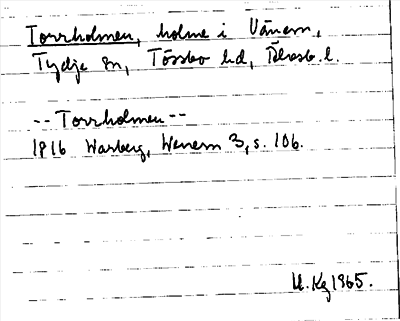 Torrholmen, holme i Vänern,
Tydje sn, Tössbo hd, Älvsb. l.
-- Torrholmen --
1916 Warberg, Wenern 3, s. 106.
U. Kg 1965.